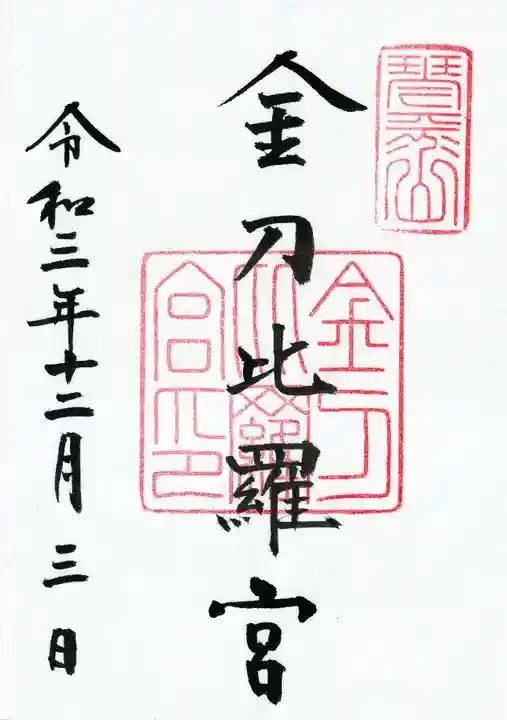 琴平山
金刀比羅宮
金刀比羅宮印
令和三年十二月三日